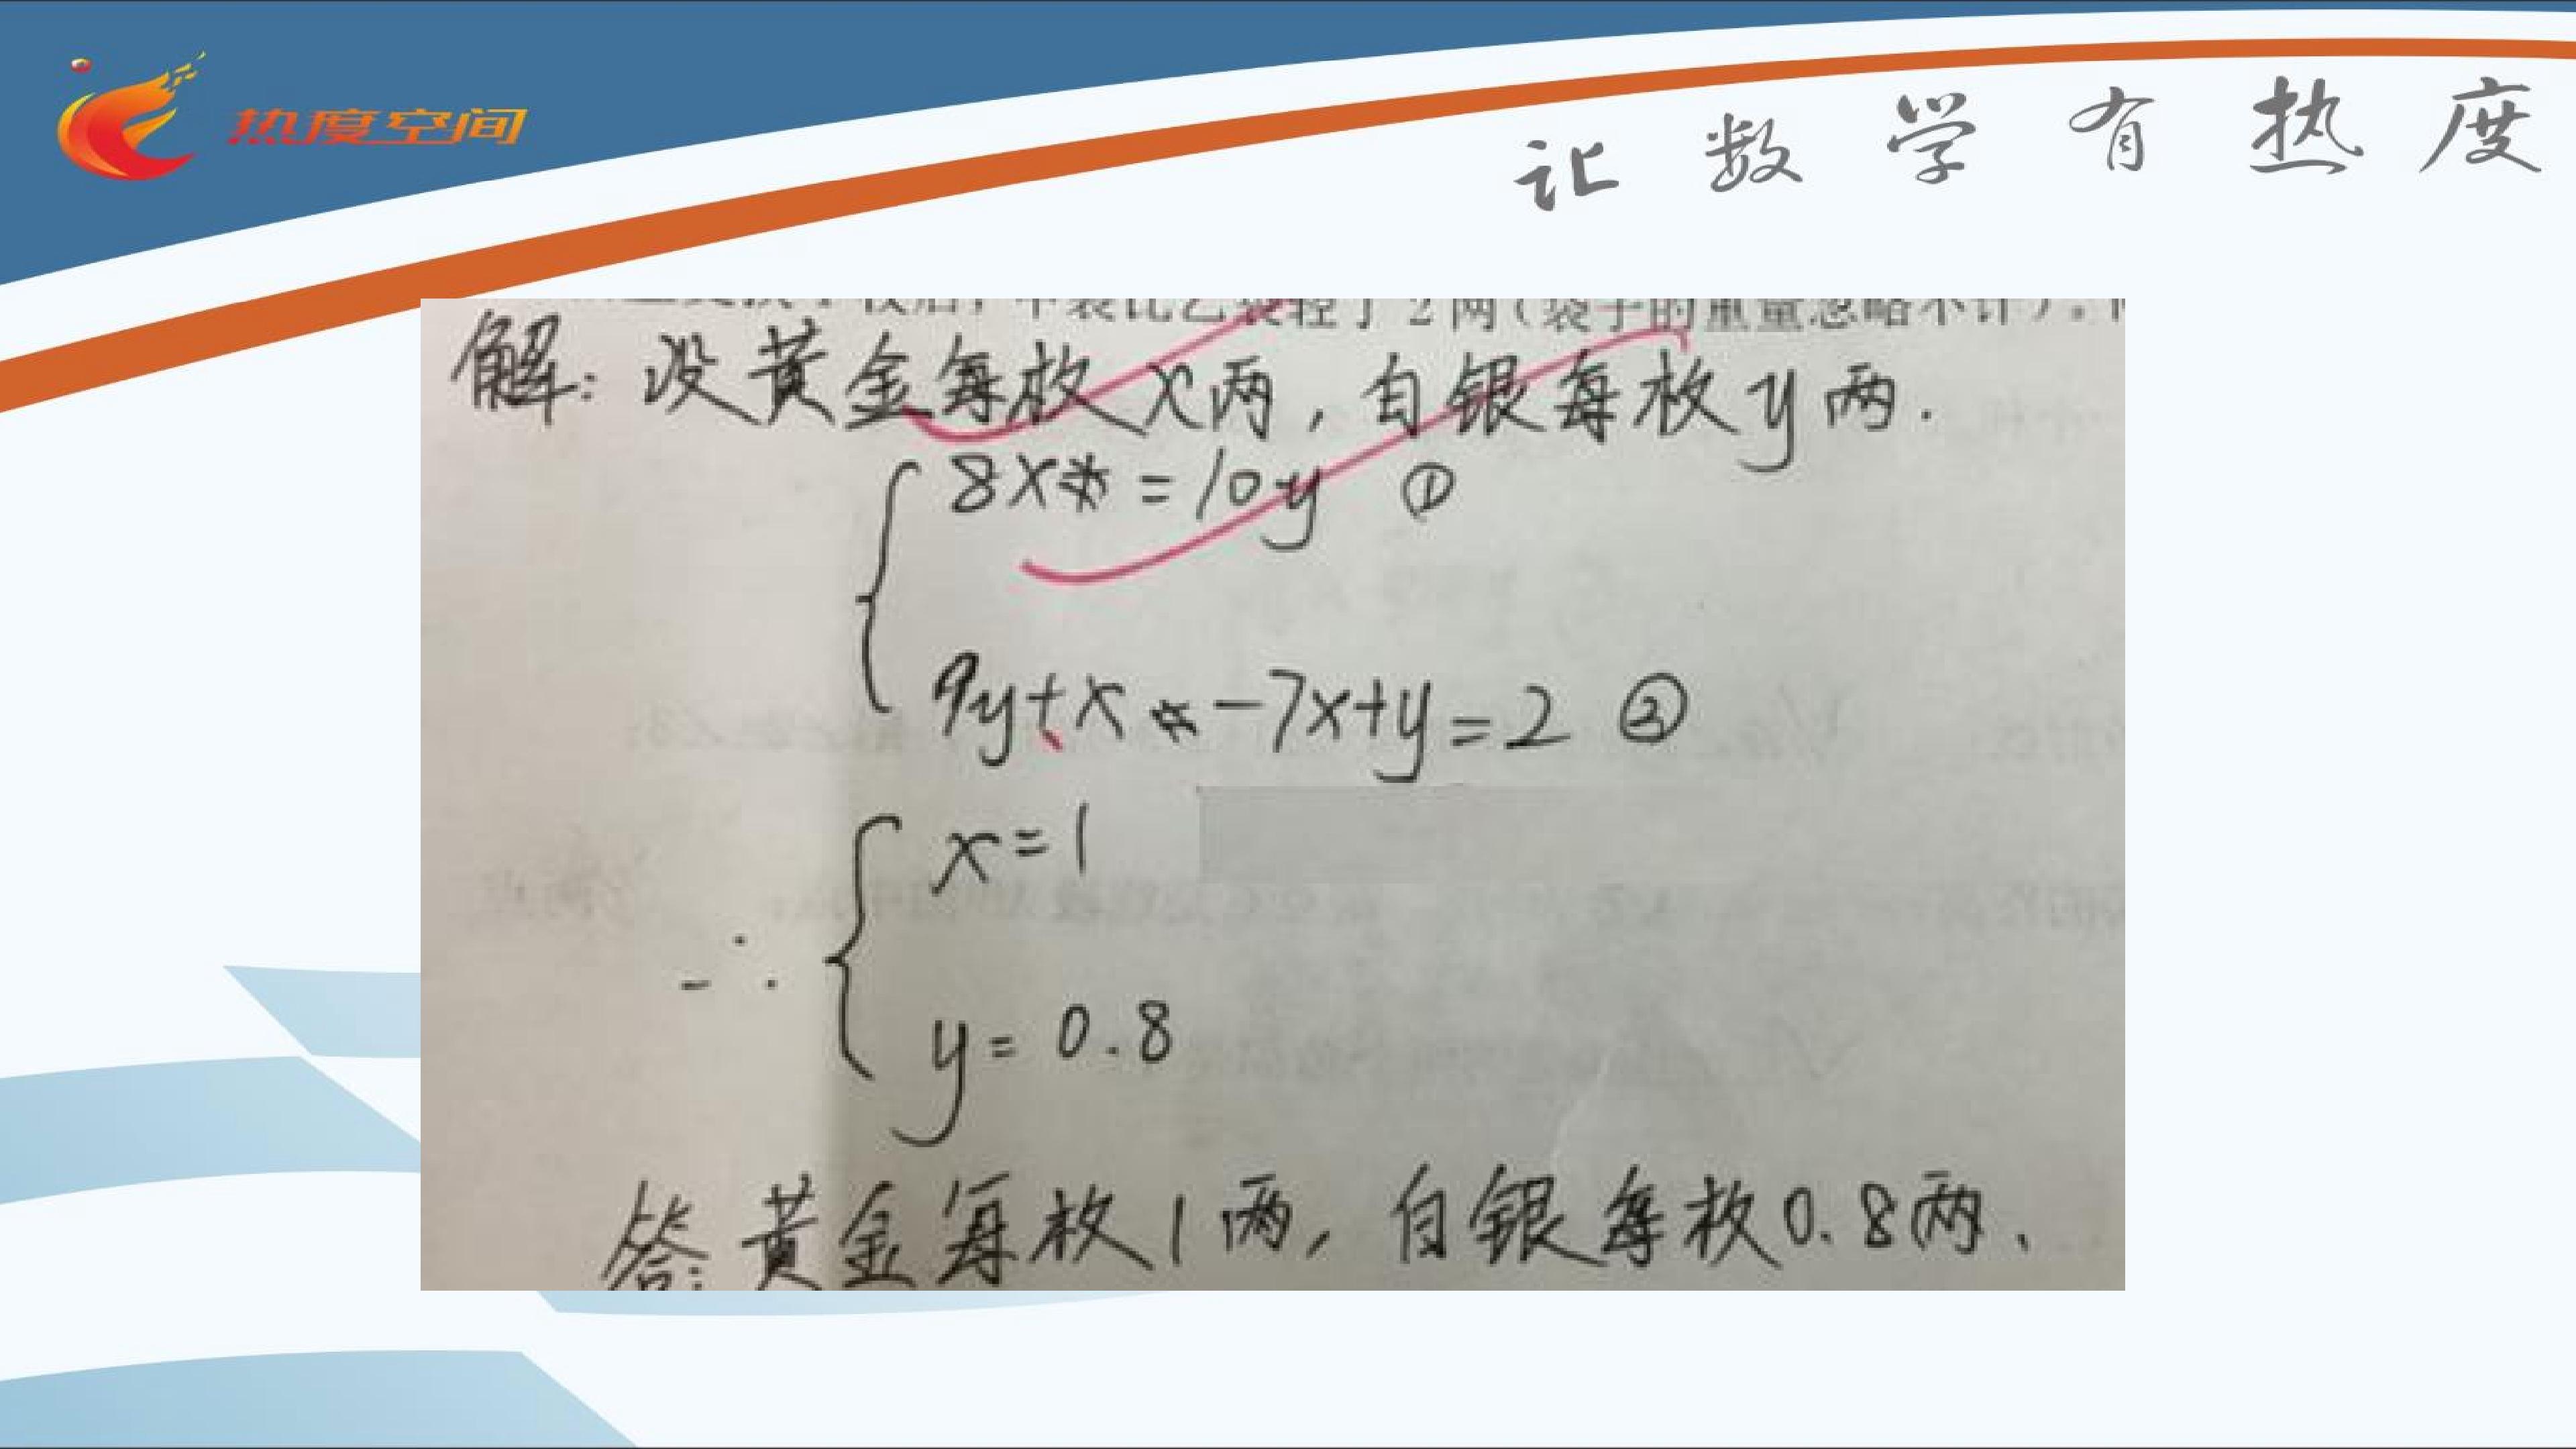 热度空间
让数学有热度
后,甲袋比乙袋轻了2两(袋子的重量忽略不计)。
解:设黄金每枚x两,白银每枚y两.
8x=10y ①
9y+x-7x+y=2 ②
x=1
∴
y=0.8
答:黄金每枚1两,白银每枚0.8两.